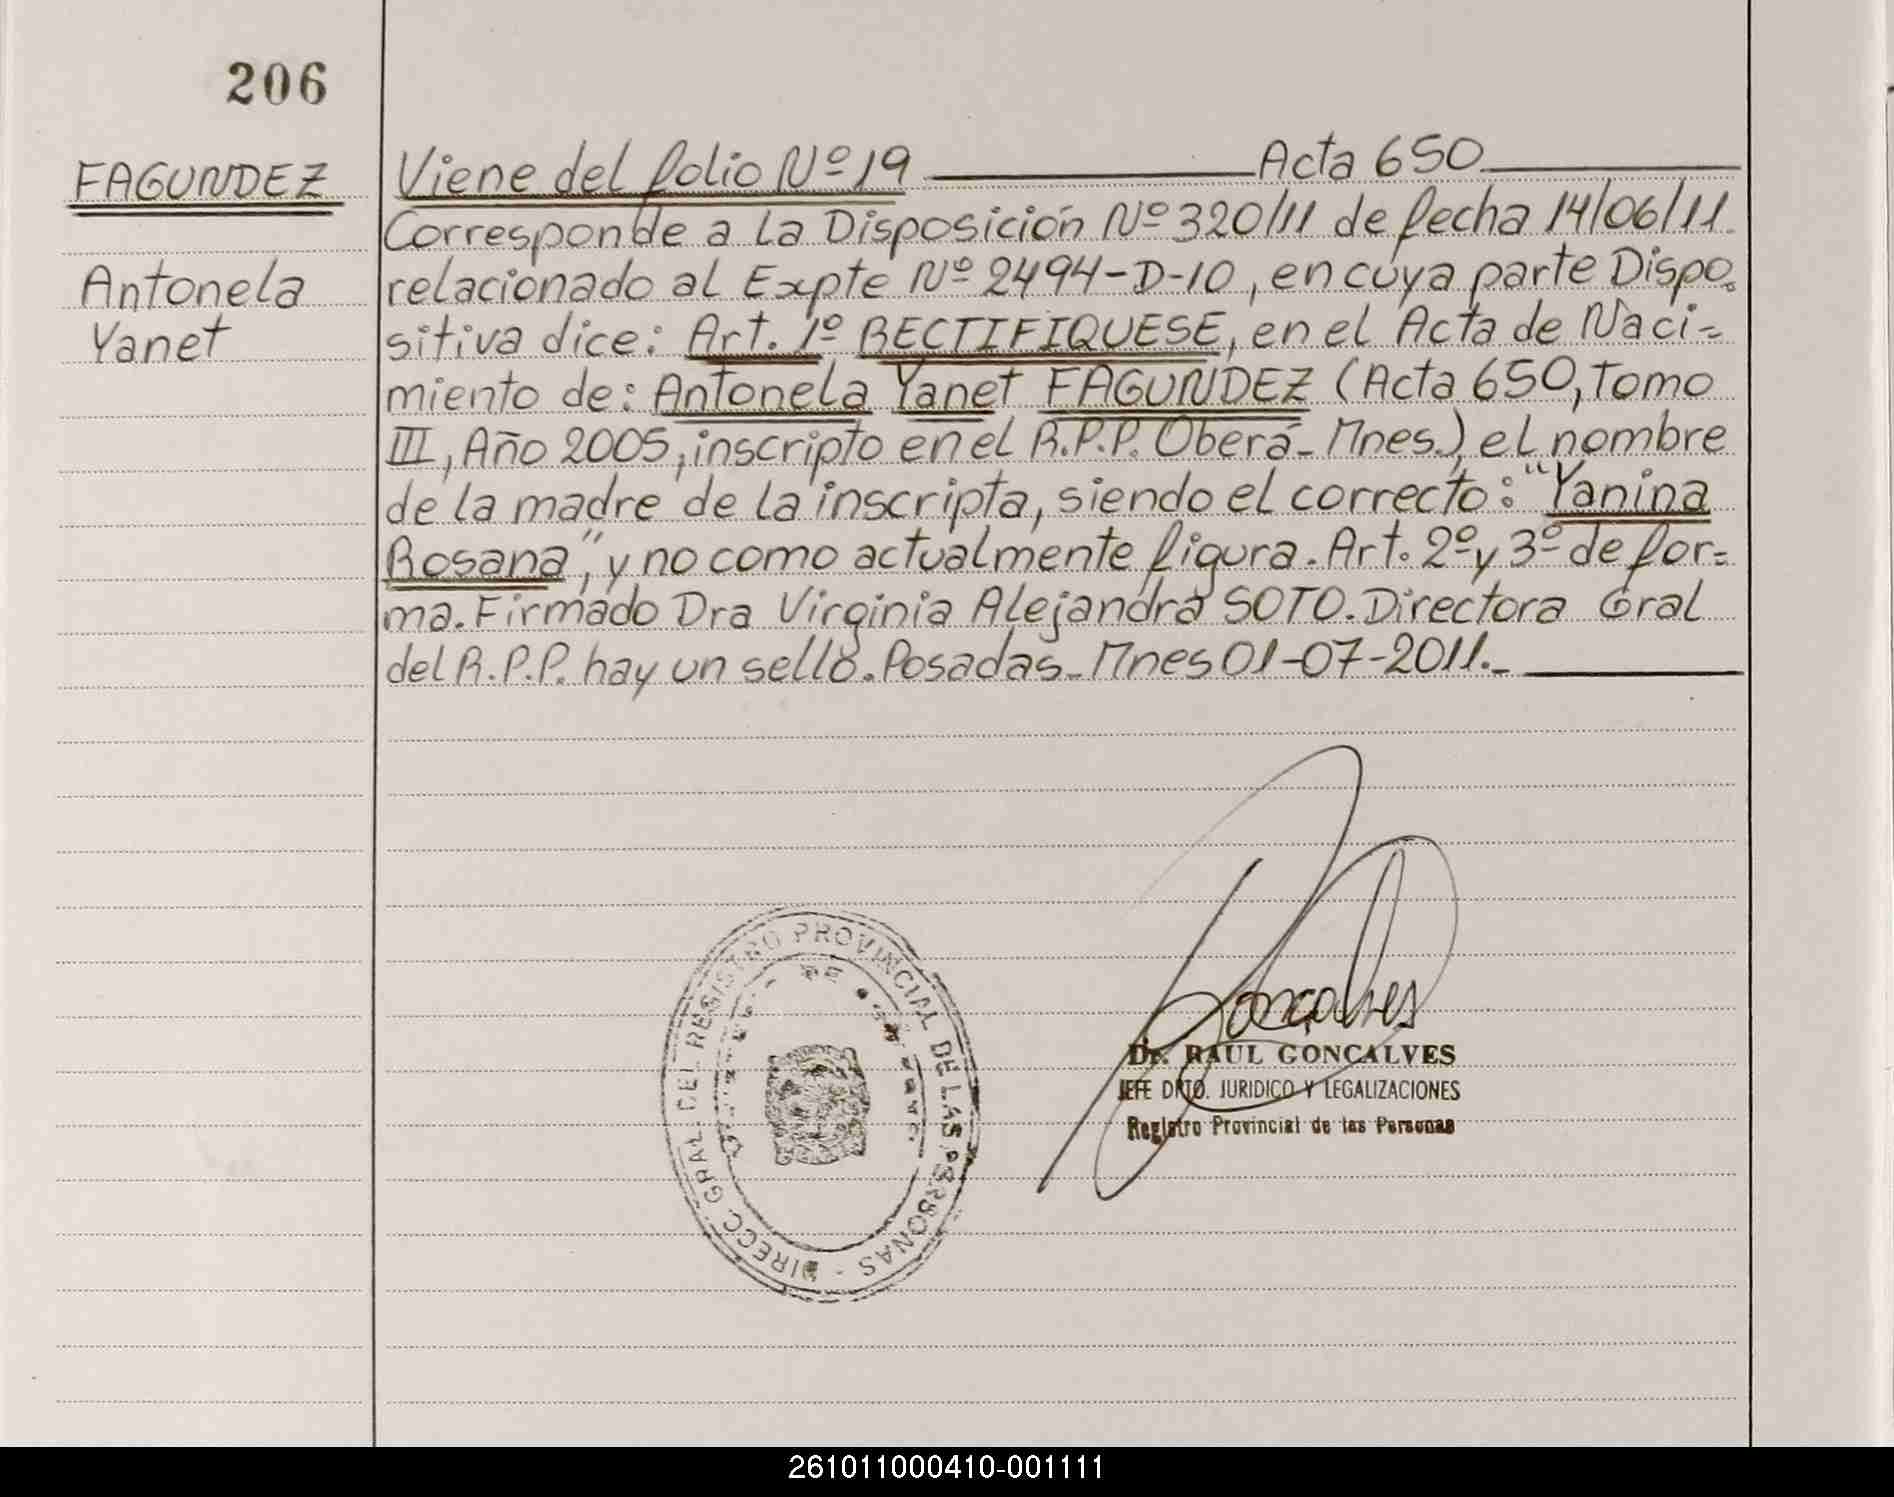 206
FAGUNDEZ
Antonela
Yanet
Viene del folio Nº 19 Acta 650
Corresponde a la Disposición Nº 320/11 de fecha 14/06/11.
relacionado al Expte Nº 2494-D-10, en cuya parte Dispo.
sitiva dice: Art. 1º RECTIFIQUESE, en el Acta de Naci=
miento de: Antonela Yanet FAGUNDEZ (Acta 650, Tomo
III, Año 2005, inscripto en el R.P.P. Oberá-Mnes.) el nombre
de la madre de la inscripta, siendo el correcto: "Yanina
Rosana", y no como actualmente figura. Art. 2º y 3º de for=
ma. Firmado Dra Virginia Alejandra SOTO. Directora Gral
del R.P.P. hay un sello. Posadas-Mnes 01-07-2011.-
DIRECC. GRAL. DEL REGISTRO PROVINCIAL DE LAS PERSONAS -
Goncalves
Dr. RAUL GONCALVES
JEFE DPTO. JURIDICO Y LEGALIZACIONES
Registro Provincial de las Personas
261011000410-001111